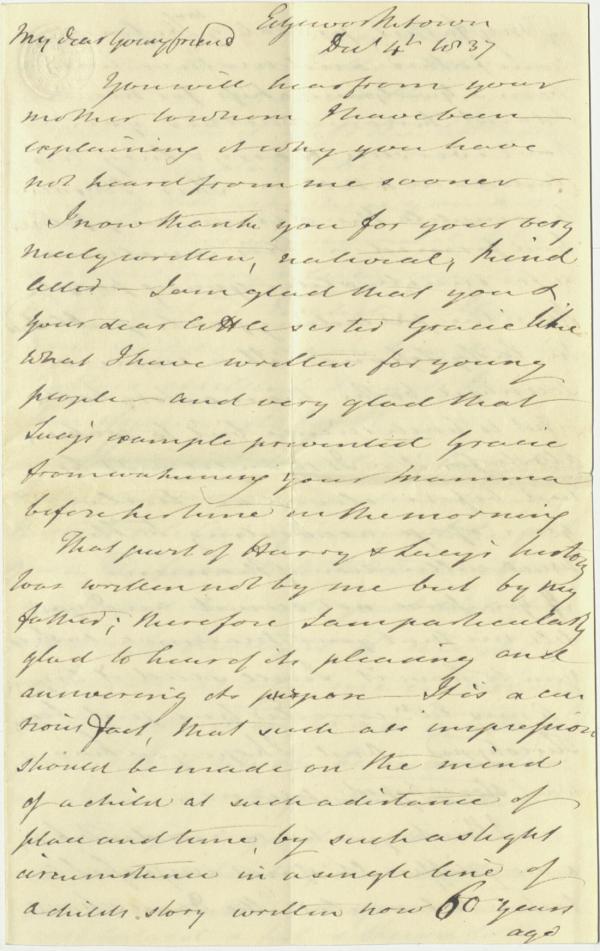 Edgeworthstown
My dear Young friend Decr 4th 1837
You will hear from your
mother to whom I have been
explaining it why you have
not heard from me sooner —
I now thank you for your very
nicely written, natural, kind
letter — I am glad that you &
your dear little sister Gracie like
what I have written for young
people — and very glad that
Lucy's example prevented Gracie
from wakening your Mamma
before her time in the morning
That part of Harry & Lucy's history
was written not by me but by my
father; therefore I am particularly
glad to hear of its pleasing and
answering its purpose — It is a cu
rious fact, that such an impression
should be made on the mind
of a child at such a distance of
place and time, by such a slight
circumstance in a single line of
a child's story written now 60 years
ago